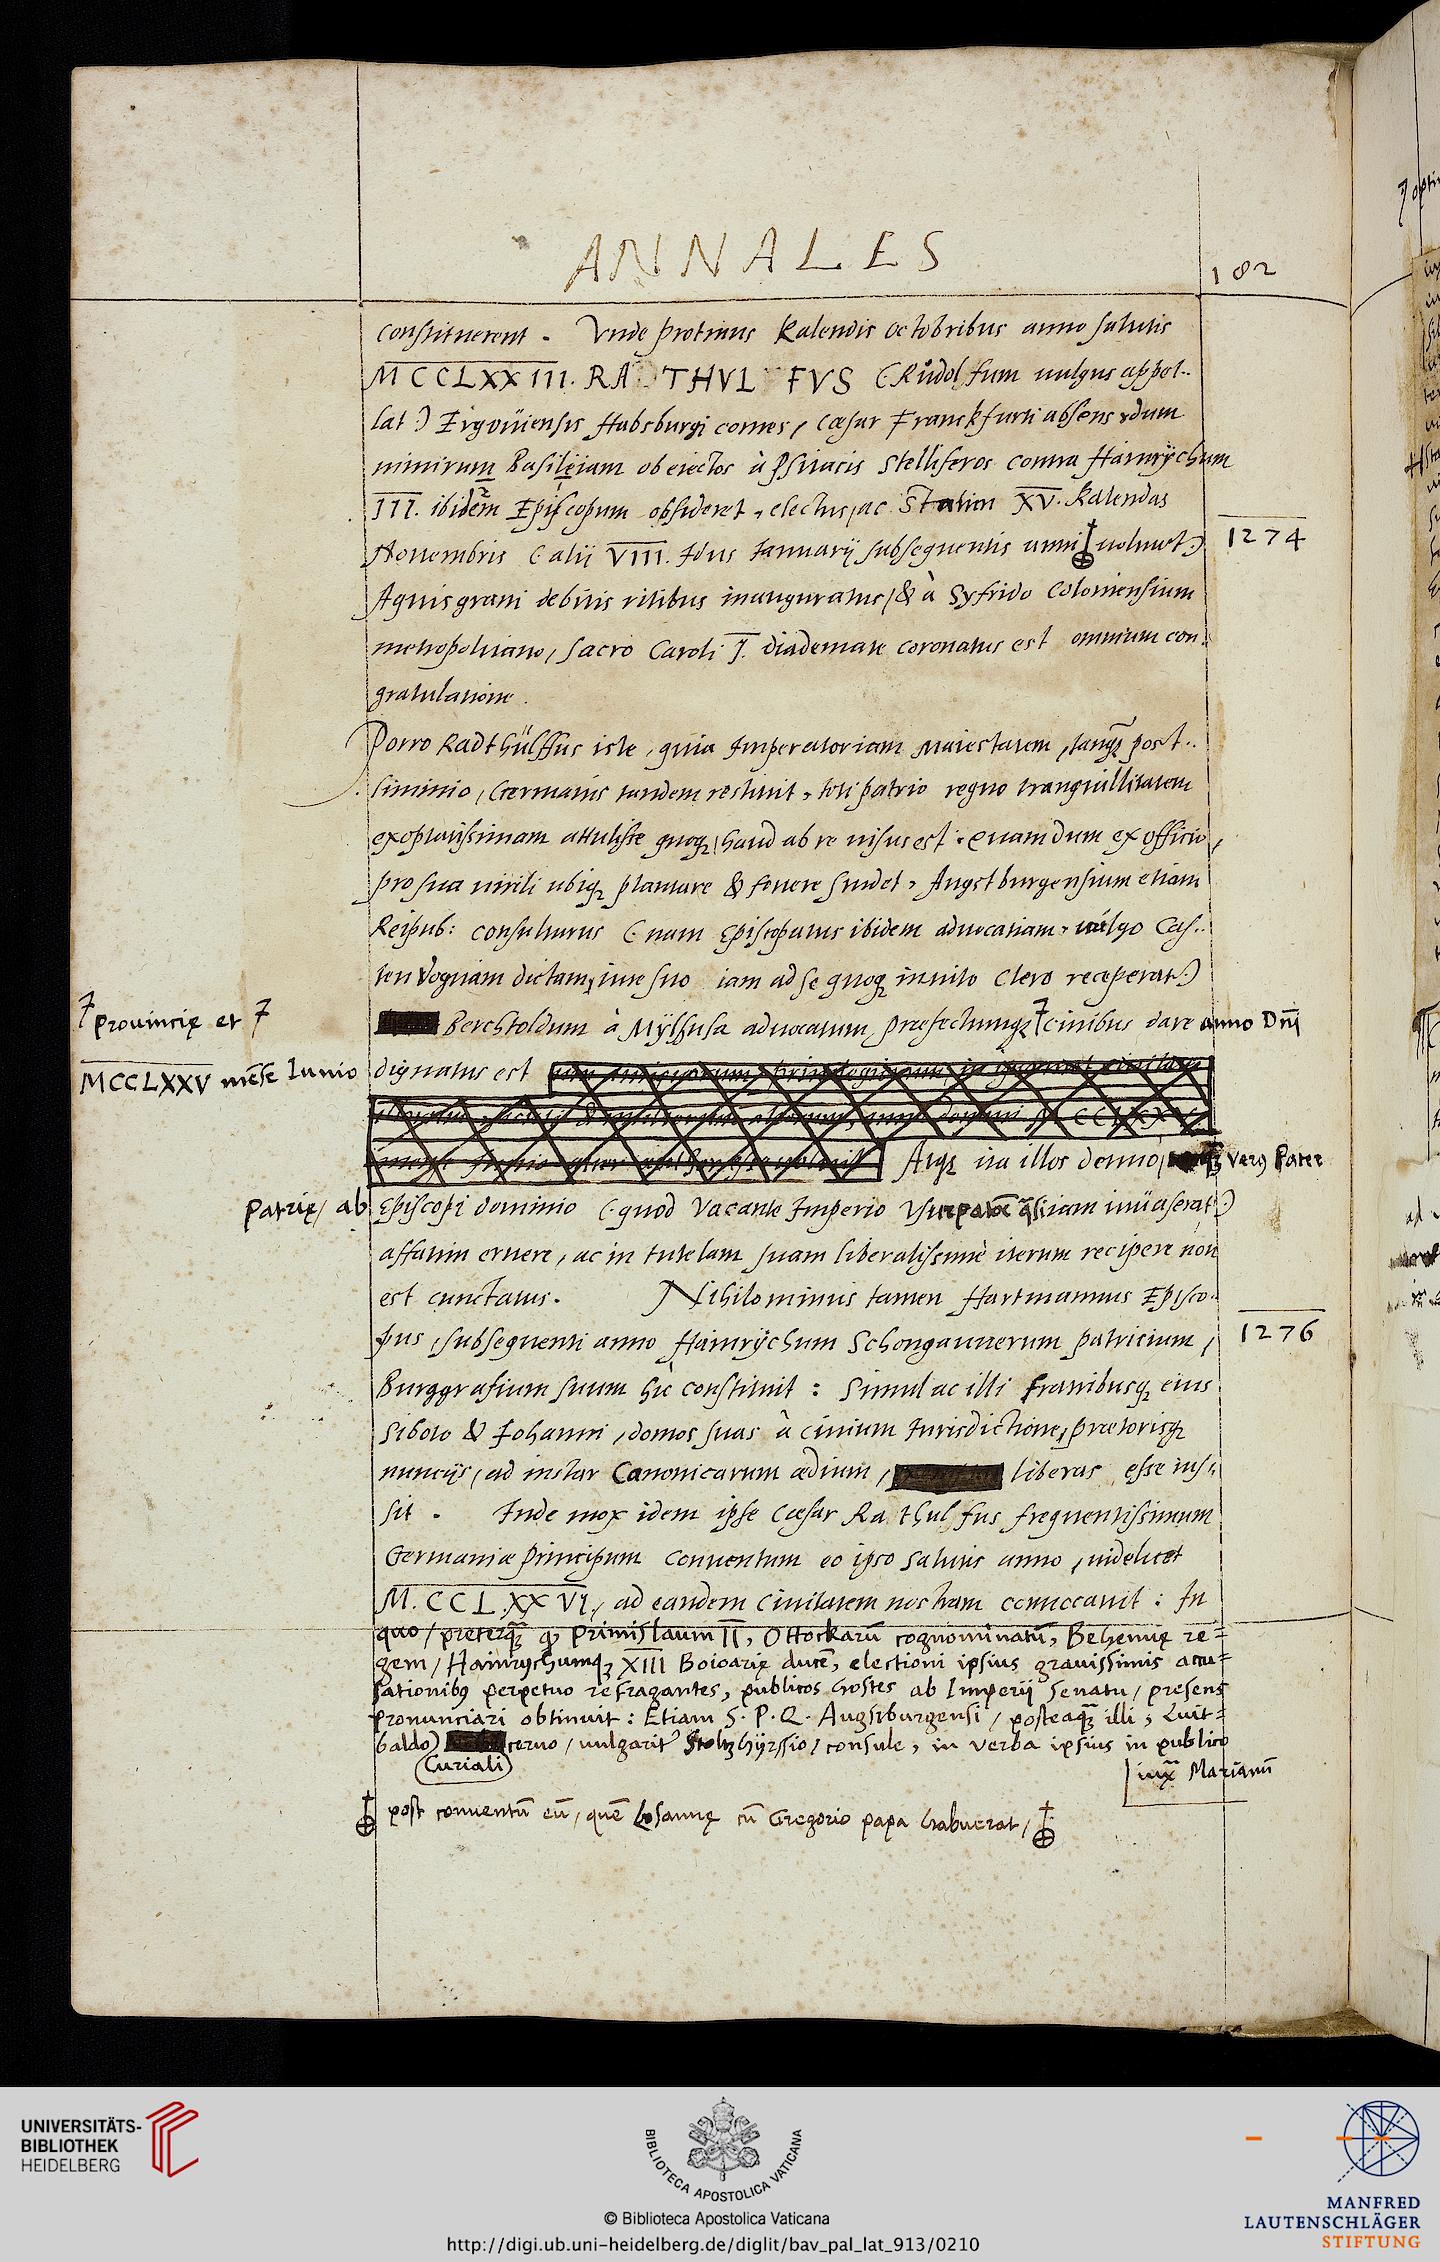 ANNALES
182
constituerent. Vnde protinus Kalendis Octobribus anno salutis
MCCLXXIII. RA THVL FVS (Růdolfum uulgus appel-
lat) Ergouiensis Habsburgi comes, Cæsar Franckfurti absens, dum
nimirum Basileiam ob eiectos à Psitacis Stelliferos contra Hainrÿchum
III. ibidem Episcopum obsideret, electus, ac Statim XV. Kalendas
Nouembris (alii VIII. Idus Ianuarij subsequentis anni uolunt)
1274
Aquisgrani debitis ritibus inauguratus, & à Syfrido Coloniensium
metropolitano, sacro Caroli I. diademate coronatus est omnium con-
gratulatione.
Porro Radthülffus iste, quia Imperatoriam Maiestatem, tanq̃ post-
liminio, Germanis tandem restituit, toti patrio regno tranquillitatem
exoptatissimam attulisse quoq;, haud ab re uisus est. Quam dum ex officio,
pro sua uirili ubiq; plantare & fouere studet, Augstburgensium etiam
Reipub: consulturus (nam Episcopatus ibidem aduocatiam, uulgo Cas-
ten Vogtiam dictam, iure suo iam ad se quoq; inuito Clero receperat)
Prouincię et
Berchtoldum à Mÿlhusa aduocatum, præfectumq; ciuibus dare anno Dn̄i
MCCLXXV mēse Iunio
dignatus est
Atq; ita illos denuo, verus Pater
Patrię, ab
Episcopi dominio (quod Vacante Imperio iam inuaserat)
affatim eruere, ac in tutelam suam liberalissimè iterum recipere non
est cunctatus. Nihilominus tamen Hartmannus Episco-
pus, subsequenti anno Hainrÿchum Schongauuerum patricium,
1276
Burggrafium suum hic constituit: Simul ac illi fratribusq; eius
Siboto & Iohanni, domos suas à ciuium Iurisdictione, prætorisq;
nuncijs, ad instar Canonicarum ædium, liberas esse ius-
sit. Inde mox idem ipse Cæsar Ra thul fus frequentissimum
Germaniæ Principum Conuentum eo ipso salutis anno, uidelicet
M.CCL.XXVI, ad eandem Ciuitatem nostram conuocauit: In
quo, preterq̃ q; Primislaum II, Ottockarū cognominatū, Behemię re-
gem, Hainrychumq; XIII Boioarię ducē, electioni ipsius grauissimis accu-
sationibus perpetuo refragantes, publicos hostes ab Imperij Senatu, presens
pronunciari obtinuit: Etiam S. P. Q. Augstburgensi, posteaq̃ illi, Luit-
baldo) ceruo, uulgarit' Stoltzhÿrssio, consule, in verba ipsius in publico
Curiali
iux̄ Marianū
post conuentū eū, quē Losannę cū Gregorio papa habuerat,
UNIVERSITÄTS-
BIBLIOTHEK
HEIDELBERG
BIBLIOTECA APOSTOLICA VATICANA
© Biblioteca Apostolica Vaticana
http://digi.ub.uni-heidelberg.de/diglit/bav_pal_lat_913/0210
MANFRED
LAUTENSCHLÄGER
STIFTUNG